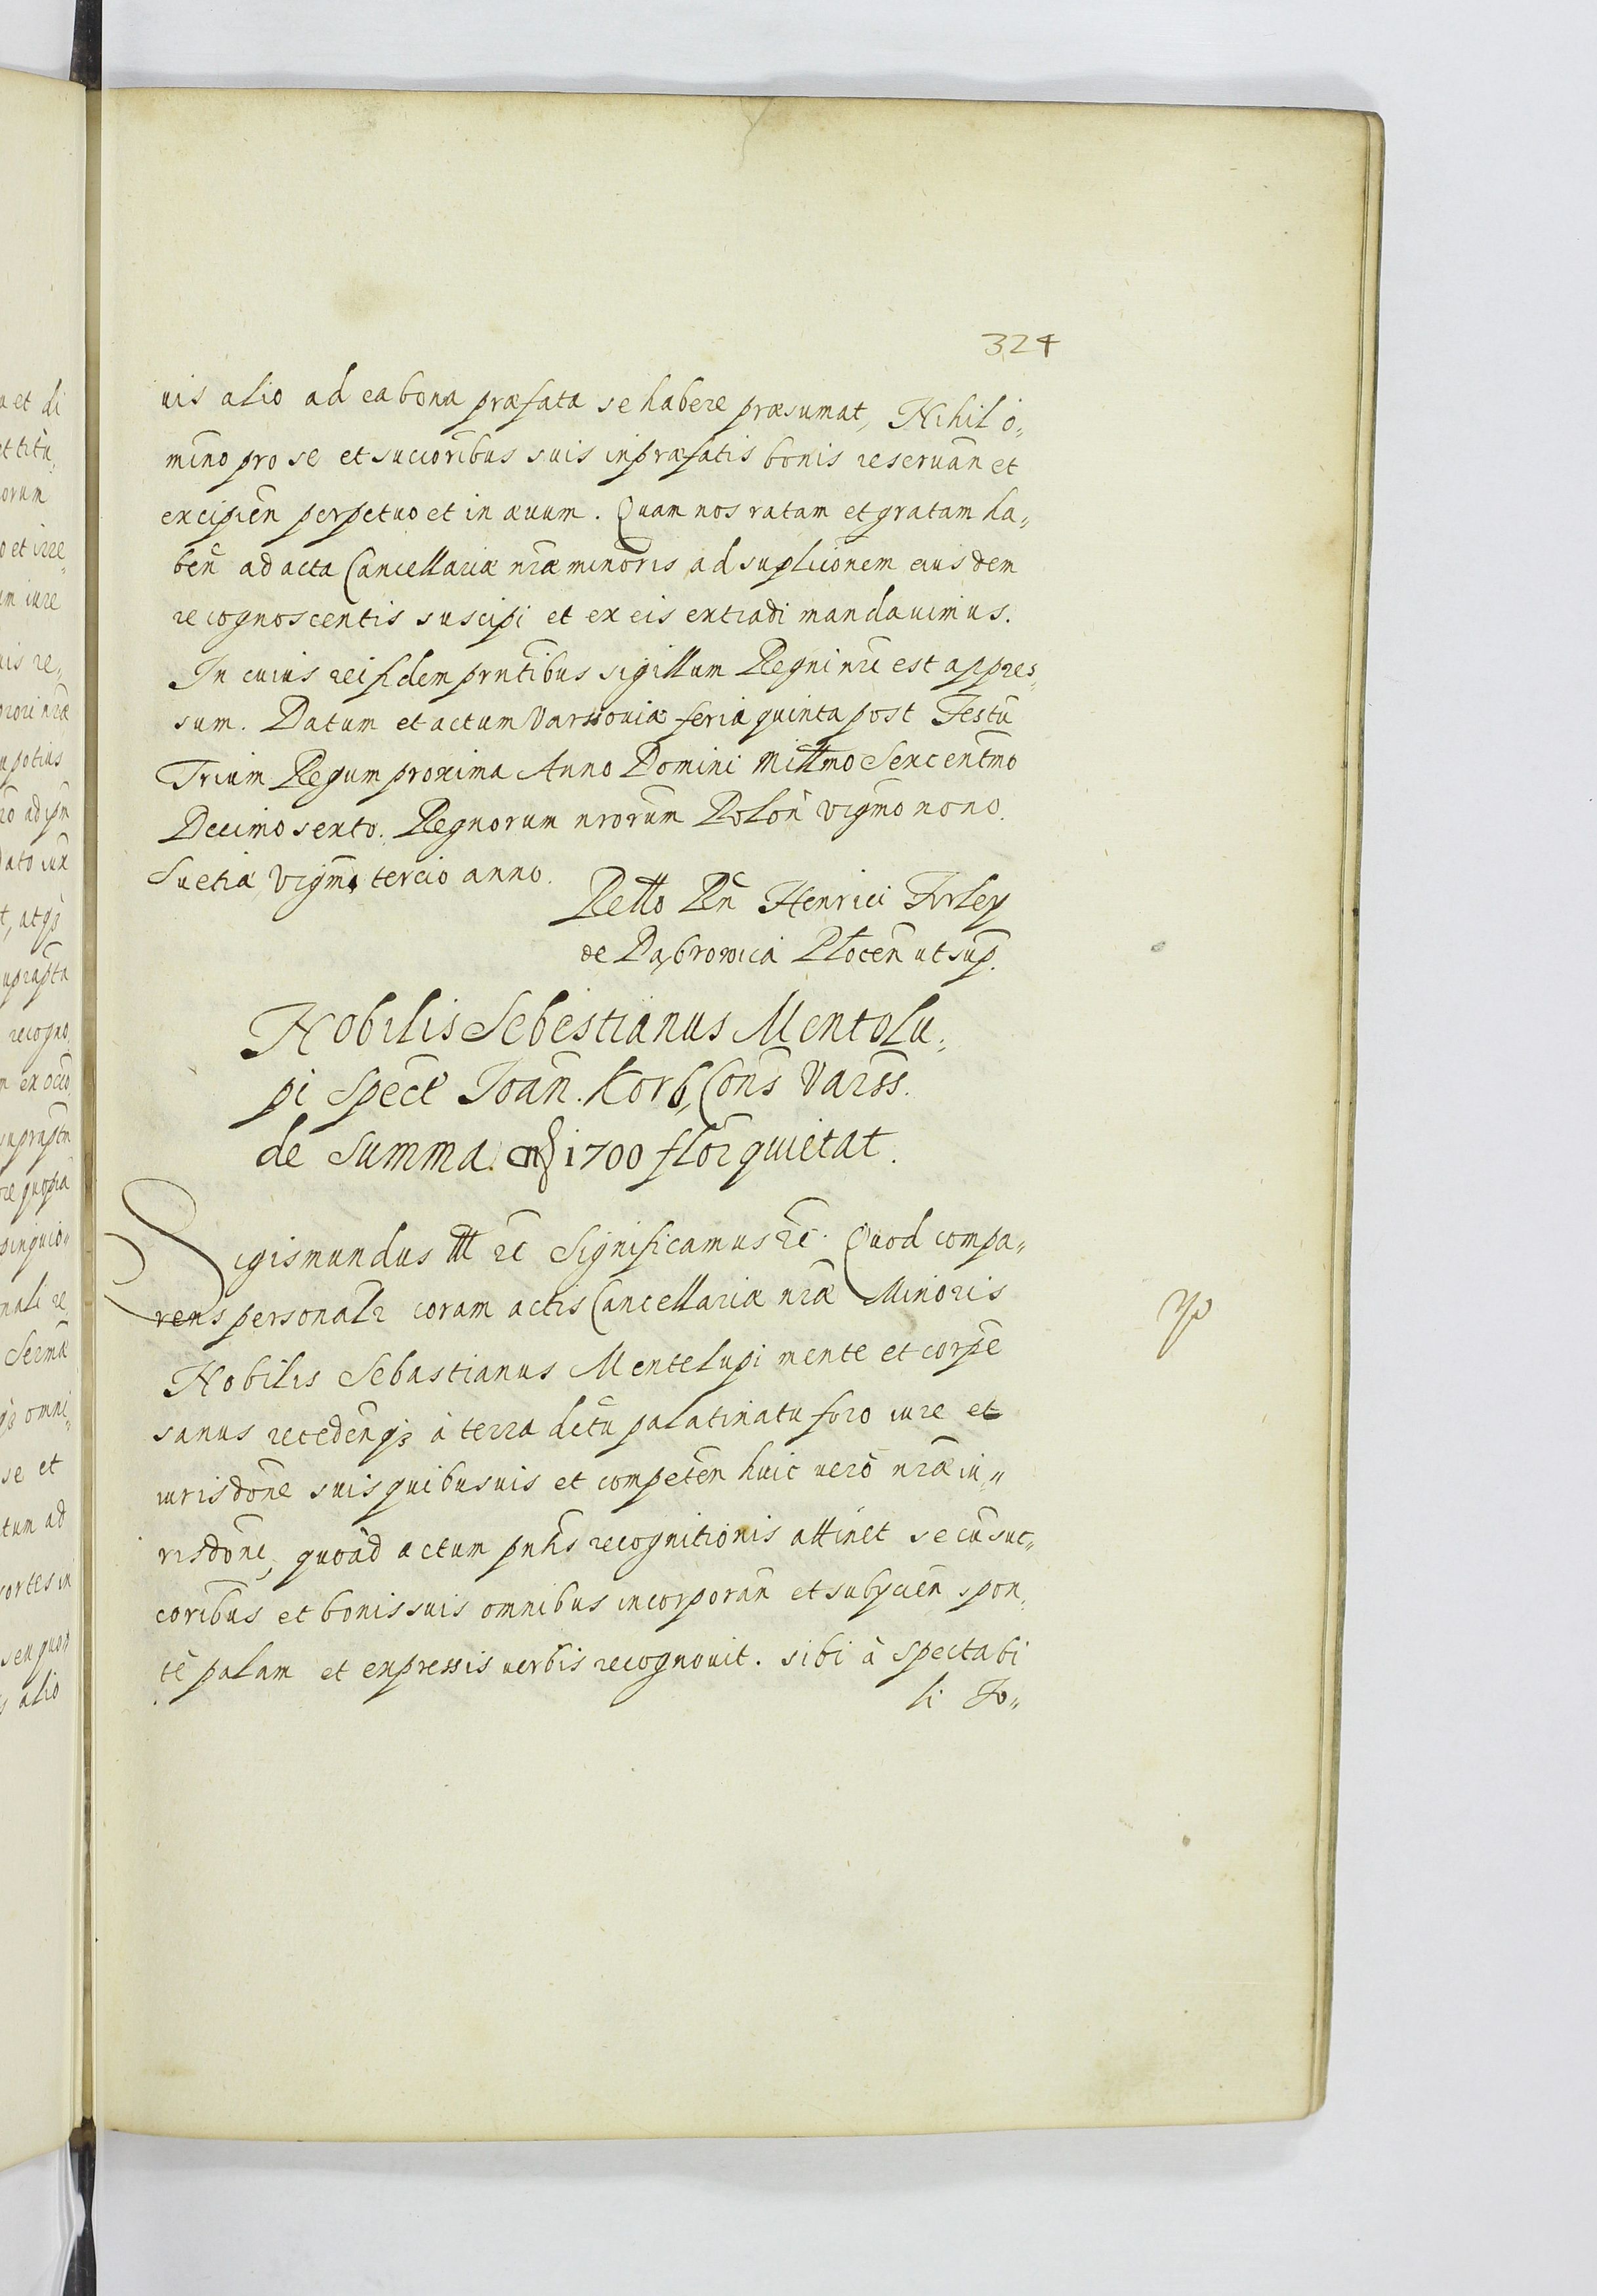 324
uis alio ad ea bona præfata se habere præsumat, Nihil o„
mino pro se et succoribus suis in præfatis bonis reseruan̄ et
excipien̄ perpetuo et in æuum. Quam nos ratam et gratam ha„
ben̄ ad acta Cancellariæ nr̄æ minoris ad suplicōnem eiusdem
recognoscentis suscipi et ex eis extradi mandauimus.
In cuius rei fidem prn̄tibus sigillum Regni nrī est appres„
sum. Datum et actum Varssouiæ feria quinta post Festū
Trium Regum proxima Anno Domini Mill̄mo Sexcentm̄o
Decimo sexto. Regnorum nrorum Polon̄ vigm̄o nono.
Suetiæ vigm̄o tercio anno.
Rel̄lo Rn̄ Henrici Firley
de Dąbrowica Plocen̄ ut sup̄.
Nobilis Sebestianus Montolu„
pi Spect̄ Joan̄. Korb, Cons̄ Varss̄.
de summa 1700 flor̄ quietat.
Sigismundus III etc̄ Significamus etc̄. Quod compa„
rens personalr̄ coram actis Cancellariæ nr̄æ Minoris
Nobilis Sebastianus Mentelupi mente et corpe
sanus recedenq3 à terra distū palatinatu foro iure et
iurisdōne suis quibusuis et competen̄ huic uerò nr̄æ iu„
risdōni, quoàd actum pn̄tis recognitionis attinet se cū suc„
coribus et bonis suis omnibus incorporan̄ et subijcien̄ spon„
tè palam et expressis uerbis recognouit. sibi à spectabi
li Jo„
a et di
et titū„
orum
o et irre„
um iure
uis re„
potius
recogno„
omni„
se et
tum ad
sortes in
alio